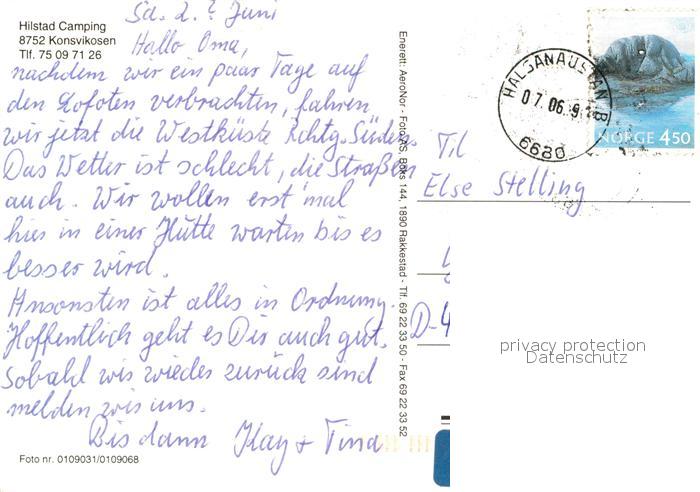 Sa. 2.? Juni
Hilstad Camping
8752 Konsvikosen
Tlf. 75 09 71 26
Hallo Oma,
nachdem wir ein paar Tage auf
den Lofoten verbrachten, fahren
wir jetzt die Westküste Richtg. Süden.
Das Wetter ist schlecht, die Straßen
auch. Wir wollen erst'mal
hier in einer Hütte warten bis es
besser wird.
Ansonsten ist alles in Ordnung.
Hoffentlich geht es Dir auch gut.
Sobald wir wieder zurück sind
melden wir uns.
Bis dann Kay + Tina
Foto nr. 0109031/0109068
Enerett: AeroNor - Foto AS, Boks 144, 1890 Rakkestad - Tlf. 69 22 33 50 - Fax 69 22 33 52
HALSANAUSTAN B
07.06.9
6680
NORGE 450
Til
Else Stelling
D-4
privacy protection
Datenschutz